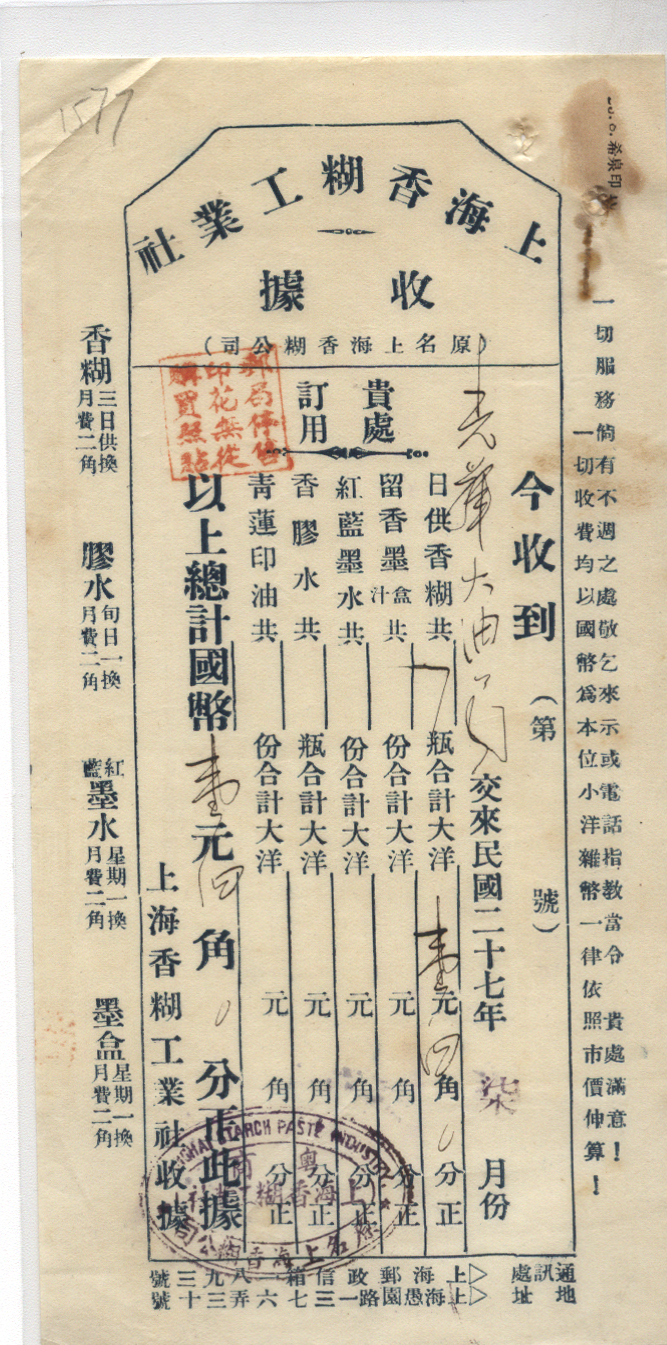 1577
希泉印
上海香糊工業社
收據
(原名上海香糊公司)
一切服務倘有不週之處敬乞來示或電話指教當令貴處滿意！
一切收費均以國幣爲本位小洋雜幣一律依照市價伸算！
今收到(第 號)
大油 交來民國二十七年柒月份
貴處訂用
日供香糊共 瓶合計大洋壹元四角0分正
留香墨盒汁共 份合計大洋 元 角 分正
紅藍墨水共 份合計大洋 元 角 分正
香膠水共 瓶合計大洋 元 角 分正
青蓮印油共 份合計大洋 元 角 分正
以上總計國幣壹元四角0分正此據
上海香糊工業社收據
郵局停售
印花無從
購買照貼
SHANGHAI STARCH PASTE INDUSTRY
上海香糊工業社
原名上海香糊公司
香糊三日供換月費二角
膠水旬日一換月費二角
紅藍墨水星期一換月費二角
墨盒星期一換月費二角
通訊處 上海郵政信箱八九三號
地址 上海愚園路一三七六弄三十號